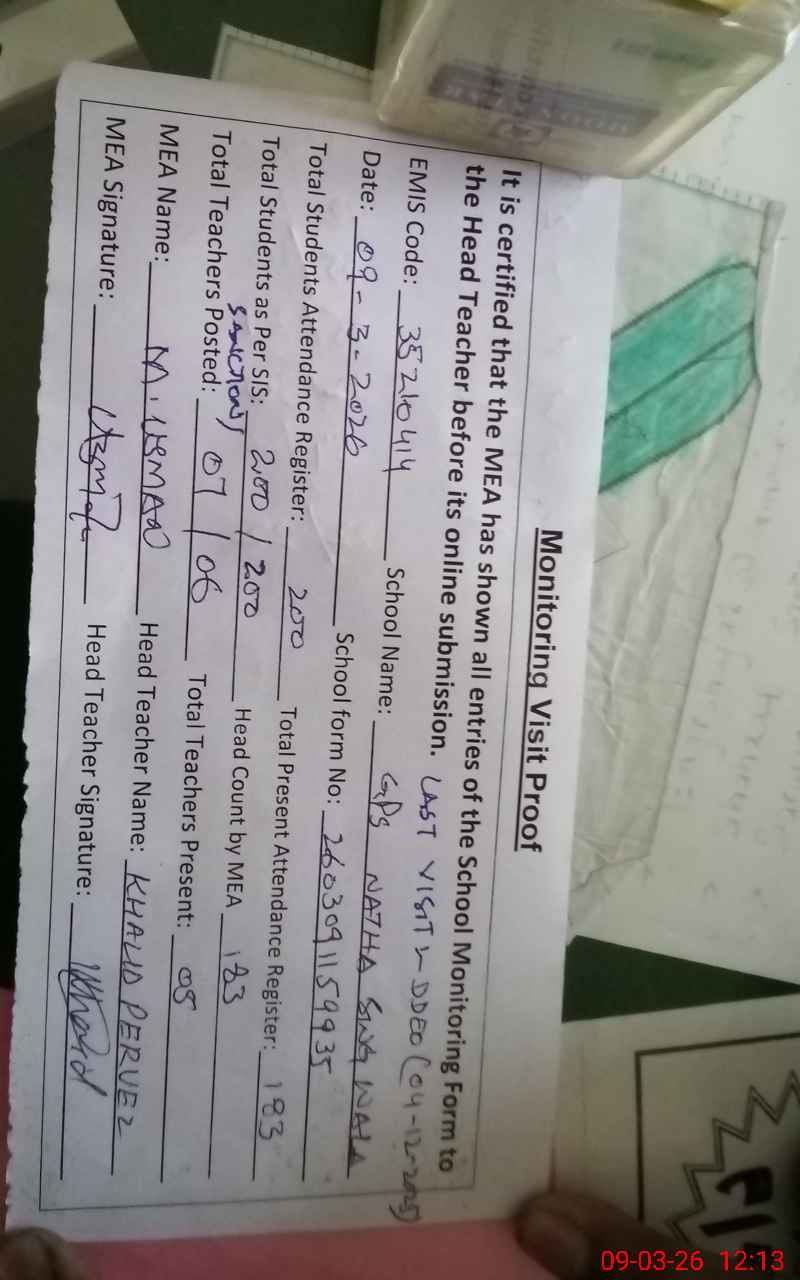 Monitoring Visit Proof
It is certified that the MEA has shown all entries of the School Monitoring Form to
the Head Teacher before its online submission. LAST VISIT DDEO (04-12-2025)
EMIS Code: 35210414 School Name: GPS NATHA SING WALA
Date: 09-3-2026 School form No: 260309115 9935
Total Students Attendance Register: 200 Total Present Attendance Register: 183
Total Students as Per SIS: 200 / 200 Head Count by MEA 183
Sanction /
Total Teachers Posted: 07 / 06 Total Teachers Present: 05
MEA Name: M. USMAN Head Teacher Name: KHALID PERVEZ
MEA Signature: Usman Head Teacher Signature: Khalid
09-03-26 12:13